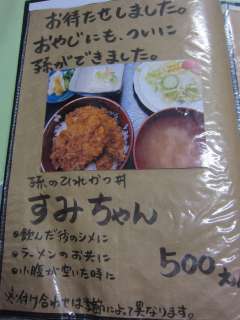 お待たせしました。
おやじにも、ついに
孫ができました。
孫のひれかつ丼
すみちゃん
飲んだ後のシメに
ラーメンのお共に
小腹が空いた時に
500
※付け合わせは季節によって異なります。